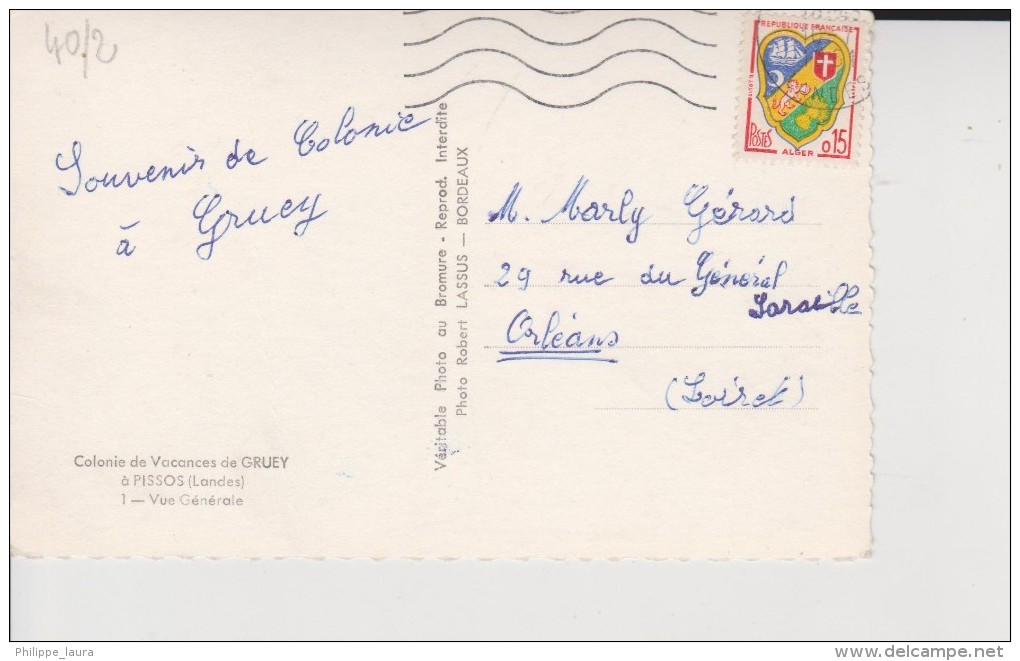 40/2
Souvenir de Colonie
à Gruey
Colonie de Vacances de GRUEY
à PISSOS (Landes)
1 — Vue Générale
Véritable Photo au Bromure - Reprod. Interdite
Photo Robert LASSUS — BORDEAUX
REPUBLIQUE FRANÇAISE
POSTES
ALGER
0,15
M. Marly Gérard
29 rue du Général
Sarai
Orléans
(Loiret)
Philippe_laura